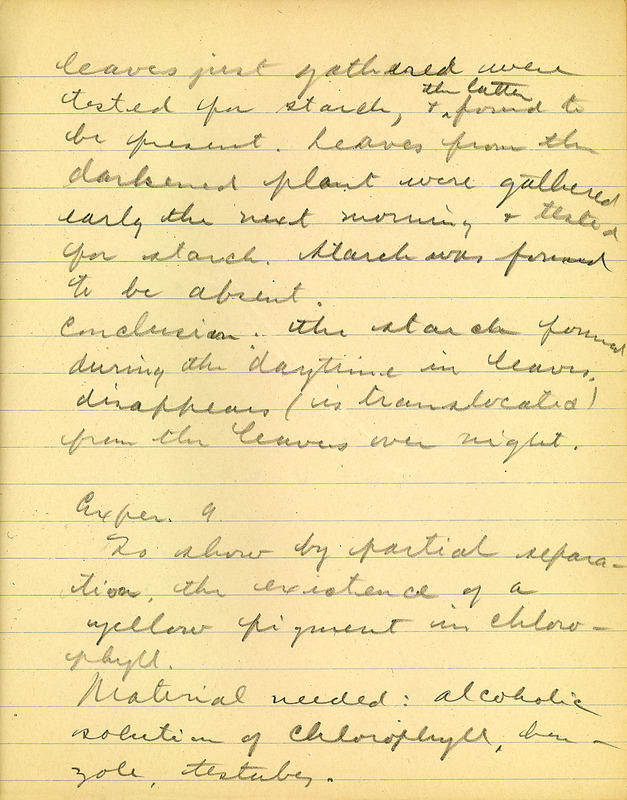 leaves just gathered were
tested for starch, & the latter found to
be present. Leaves from the
darkened plant were gathered
early the next morning & tested
for starch. Starch was found
to be absent.
Conclusion. The starch formed
during the daytime in leaves,
disappears (is translocated)
from the leaves over night.
Exper. 9
To show by partial separa-
tion, the existence of a
yellow pigment in chloro-
phyll.
Material needed: alcoholic
solution of chlorophyll, ben-
zole, testubes.